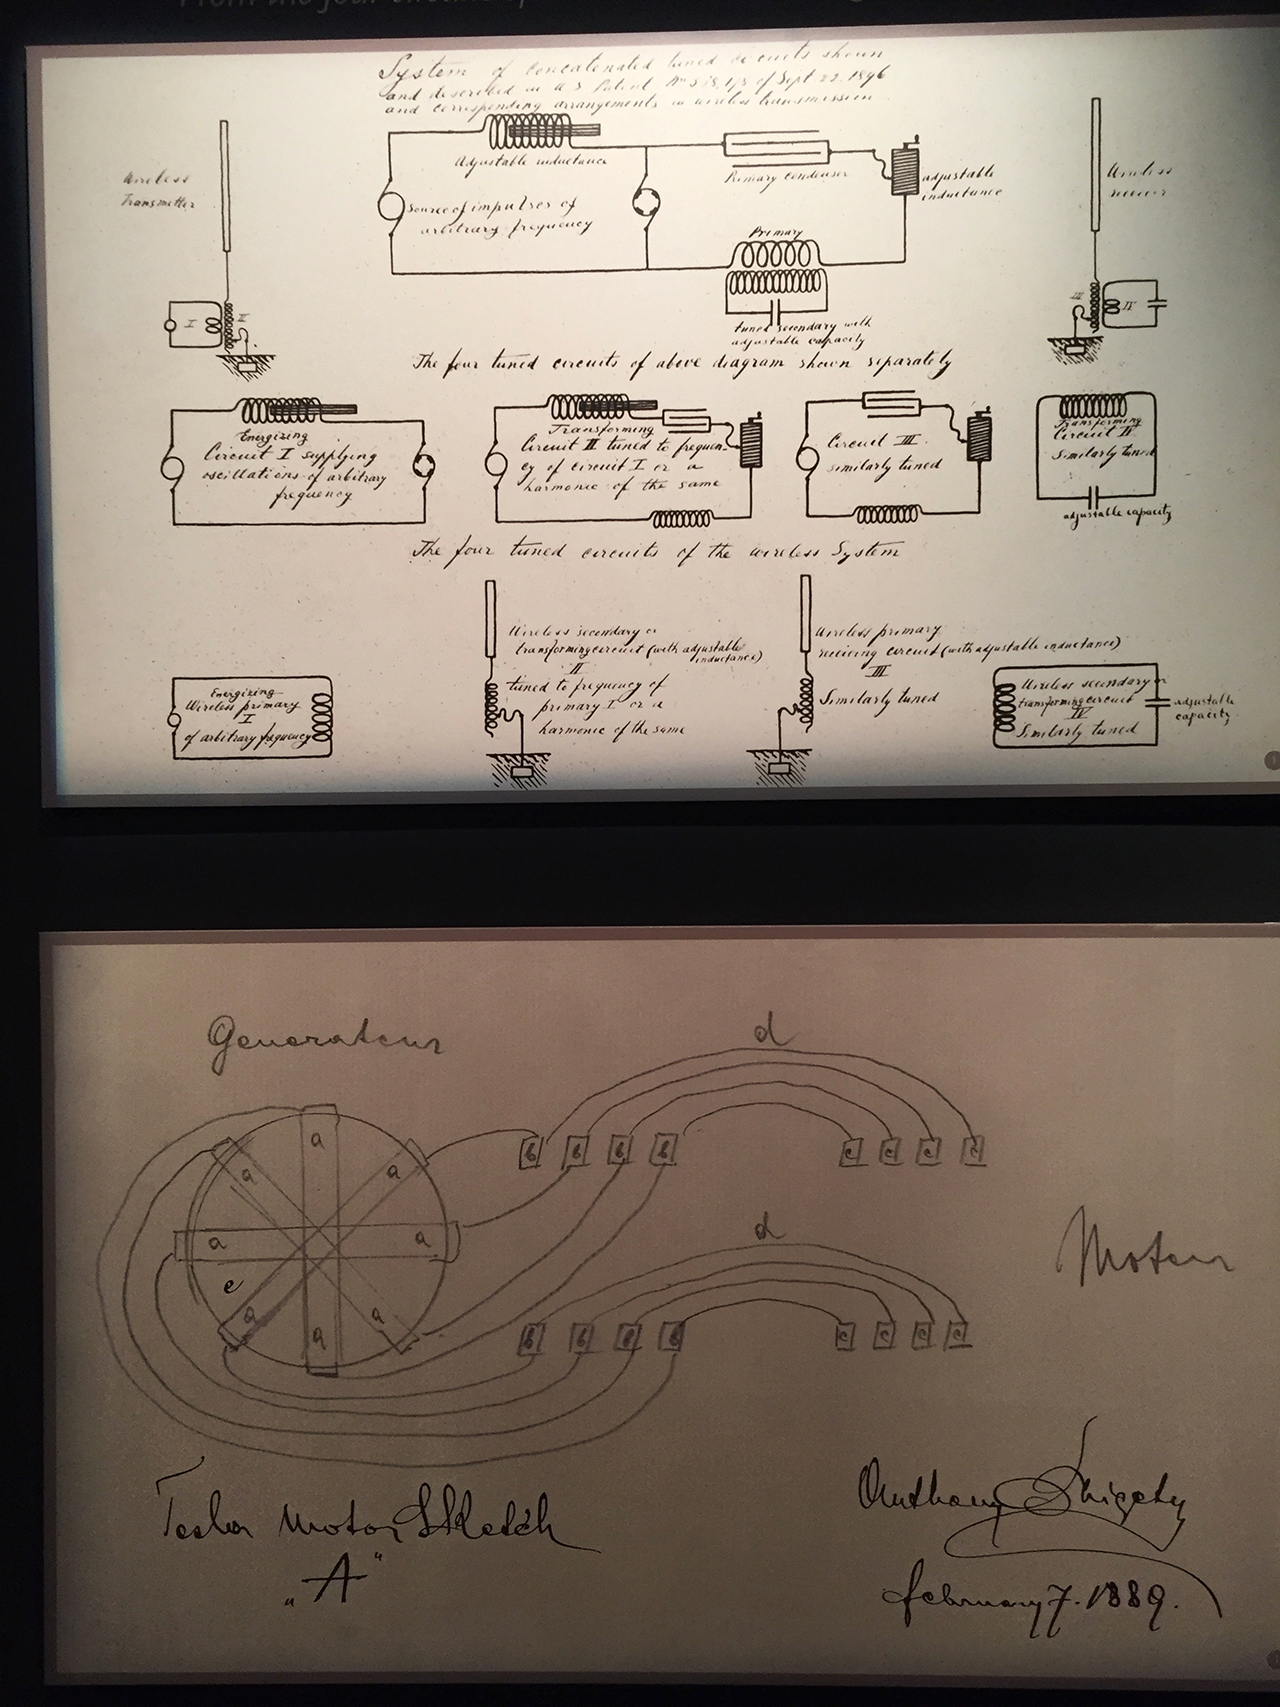 From the four circuits of
System of concatenated tuned circuits shown
and described in U.S. Patent No 568,178 of Sept 22, 1896
and corresponding arrangements in wireless transmission
Wireless
Transmitter
Adjustable inductance
Primary condenser
adjustable
inductance
Wireless
receiver
Source of impulses of
arbitrary frequency
Primary
I
II
III
IV
tuned secondary with
adjustable capacity
The four tuned circuits of above diagram shown separately
Energizing
Circuit I supplying
oscillations of arbitrary
frequency
Transforming
Circuit II tuned to frequen-
cy of circuit I or a
harmonic of the same
Circuit III
similarly tuned
Transforming
Circuit IV
Similarly tuned
adjustable capacity
The four tuned circuits of the wireless System
Energizing
Wireless primary
I
of arbitrary frequency
Wireless secondary or
transforming circuit (with adjustable
inductance)
II
tuned to frequency of
primary I or a
harmonic of the same
Wireless primary
receiving circuit (with adjustable inductance)
III
Similarly tuned
Wireless secondary or
transforming circuit
IV
Similarly tuned
adjustable
capacity
Generateur
d
a
a a
a a
e
a a
a
b b b b c c c c
d
b b b b c c c c
Moteur
Tesla Motor Sketch
"A"
Anthony Szigety
february 7. 1889.